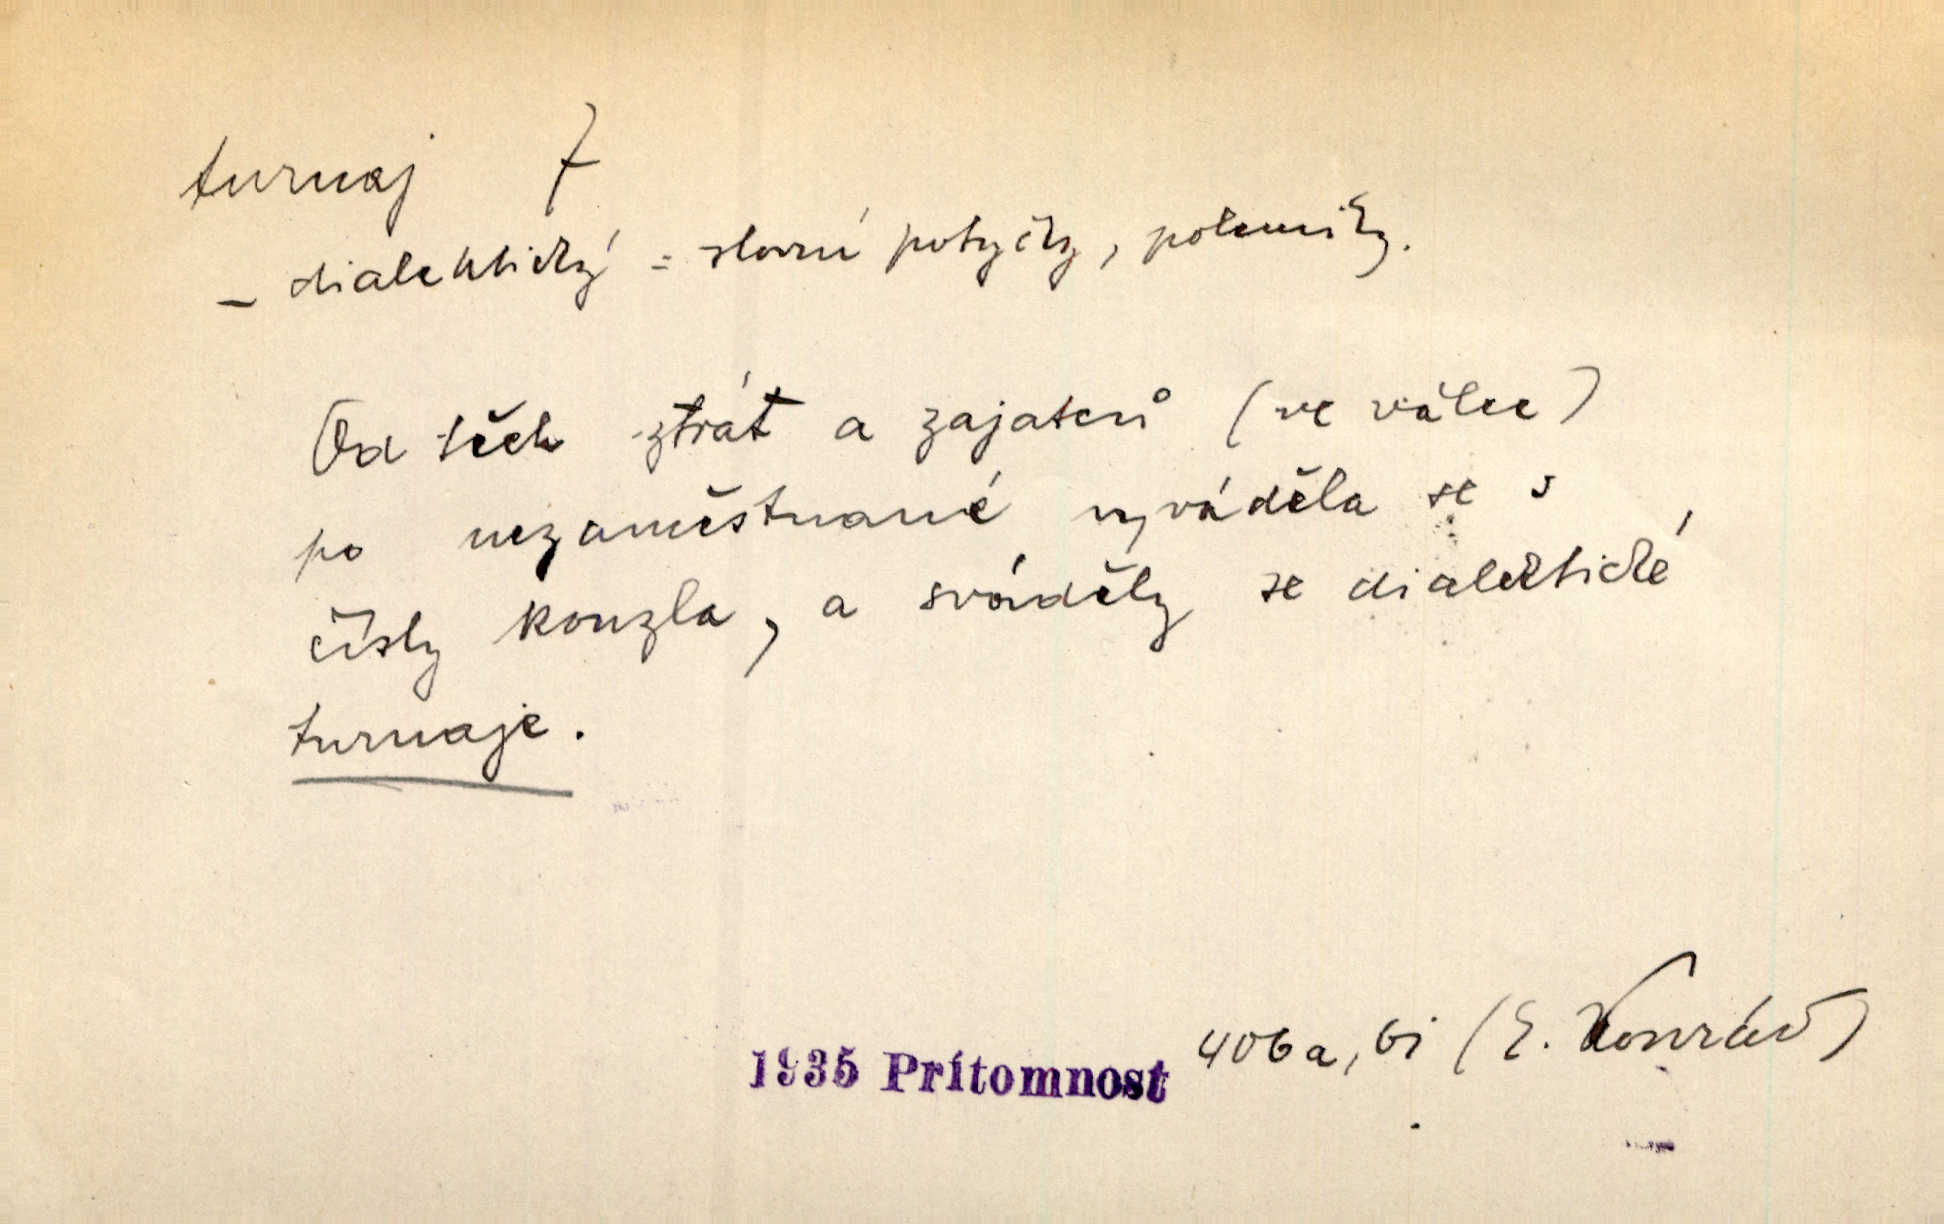 turnaj 7
– dialektický = slovní potyčky, polemiky.
Od těch ztrát a zajatců (ve válce)
po nezaměstnané vyváděla se s
čísly kouzla, a sváděly se dialektické
turnaje.
1935 Prítomnost 406a, (E. Konrád)